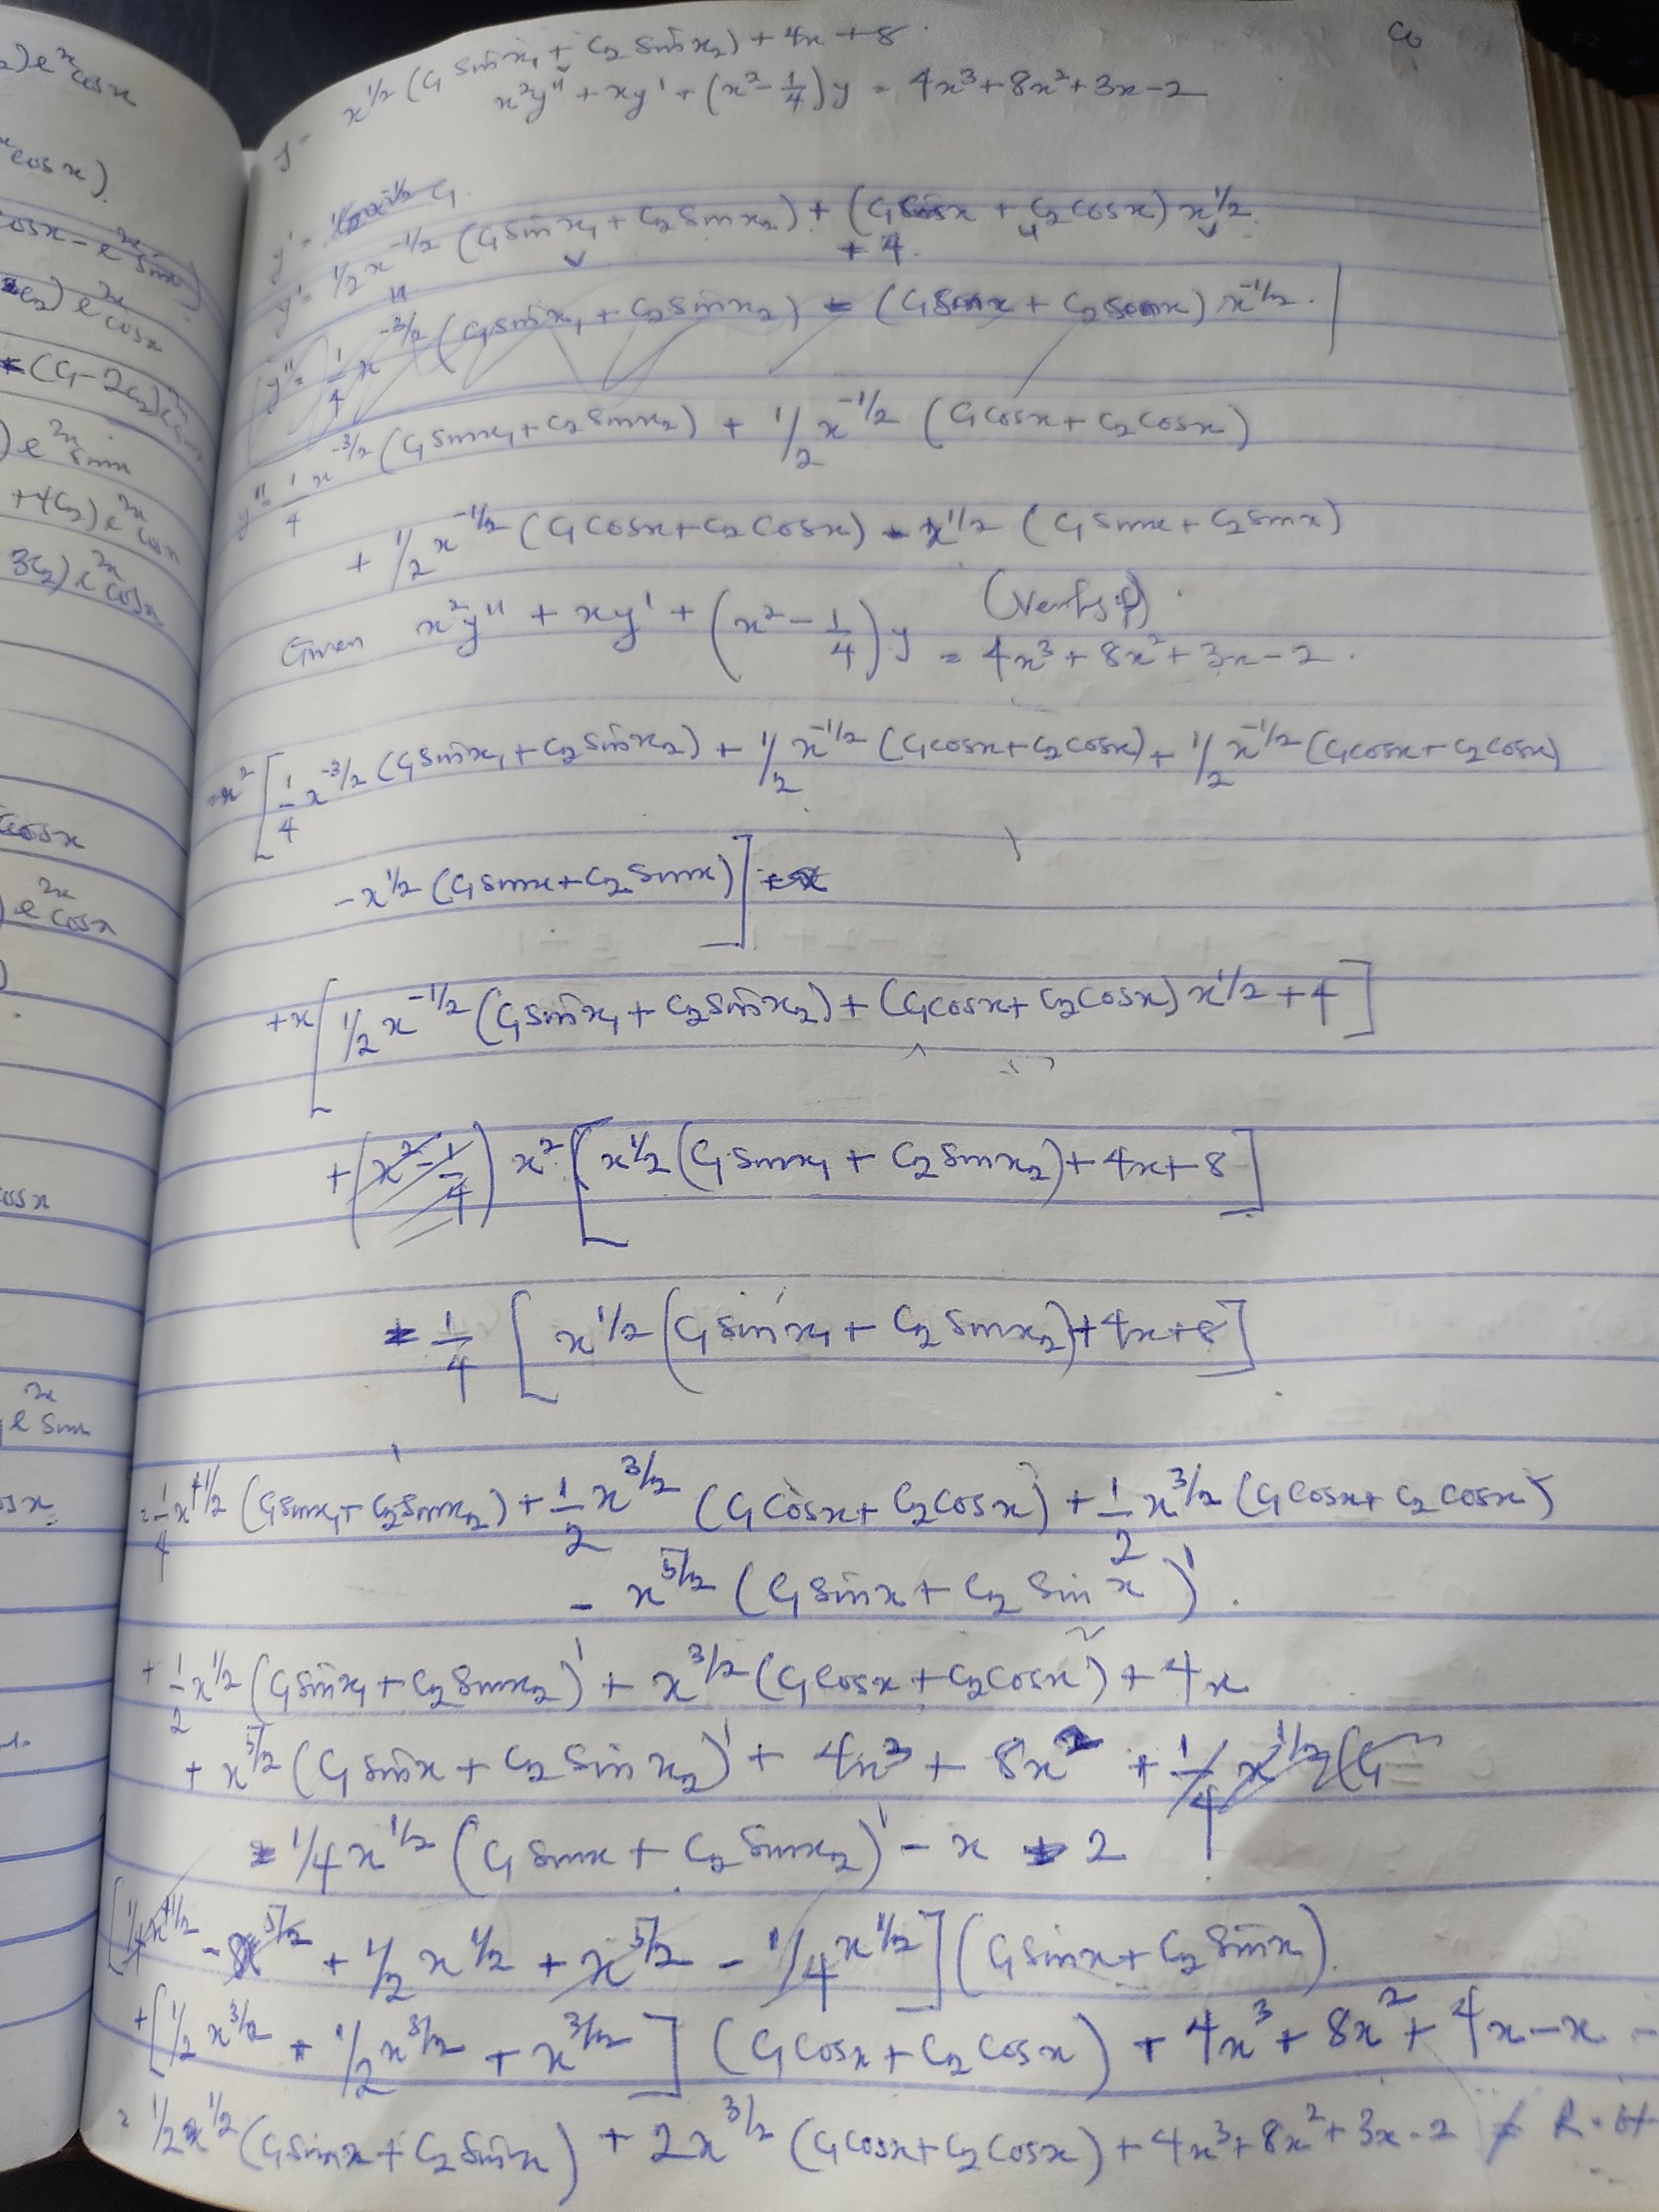 )e^x cosx
cosx).
cosx - e^x sinx)
c₂) e^x cosx
(C₁-2C₂)
) e^x sinx
+4C₂) e^x cosx
3C₂) e^x cosx
cosx
) e^x cosx
)
cosx
e^x sinx
y = x^1/2 (C₁ sinx₁ + C₂ sinx₂) + 4x + 8.
x²y'' + xy' + (x² - 1/4)y = 4x³ + 8x² + 3x - 2
y' =
y' = 1/2 x^-1/2 (C₁ sinx₁ + C₂ sinx₂) + (C₁ cosx + C₂ cosx) x^1/2
+ 4.
y'' = 1/4 x^-3/2 (C₁ sinx₁ + C₂ sinx₂) - (C₁ sinx + C₂ sinx) x^-1/2.
y'' = 1/4 x^-3/2 (C₁ sinx₁ + C₂ sinx₂) + 1/2 x^-1/2 (C₁ cosx + C₂ cosx)
+ 1/2 x^-1/2 (C₁ cosx + C₂ cosx) - x^1/2 (C₁ sinx + C₂ sinx)
Given x²y'' + xy' + (x² - 1/4)y = 4x³ + 8x² + 3x - 2.
= x² [1/4 x^-3/2 (C₁ sinx₁ + C₂ sinx₂) + 1/2 x^-1/2 (C₁ cosx + C₂ cosx) + 1/2 x^-1/2 (C₁ cosx + C₂ cosx)
- x^1/2 (C₁ sinx + C₂ sinx)]
+ x [1/2 x^-1/2 (C₁ sinx₁ + C₂ sinx₂) + (C₁ cosx + C₂ cosx) x^1/2 + 4]
+ (x² - 1/4) x² [x^1/2 (C₁ sinx₁ + C₂ sinx₂) + 4x + 8]
- 1/4 [x^1/2 (C₁ sinx₁ + C₂ sinx₂) + 4x + 8]
= 1/4 x^+1/2 (C₁ sinx₁ + C₂ sinx₂) + 1/2 x^3/2 (C₁ cosx + C₂ cosx) + 1/2 x^3/2 (C₁ cosx + C₂ cosx)
- x^5/2 (C₁ sinx + C₂ sinx).
+ 1/2 x^1/2 (C₁ sinx₁ + C₂ sinx₂) + x^3/2 (C₁ cosx + C₂ cosx) + 4x
+ x^5/2 (C₁ sinx + C₂ sinx₂) + 4x³ + 8x² + 1/4 x^1/2 (C₁
- 1/4 x^1/2 (C₁ sinx + C₂ sinx₂) - x - 2
[1/4 x^+1/2 - x^5/2 + 1/2 x^1/2 + x^5/2 - 1/4 x^1/2] (C₁ sinx + C₂ sinx)
+ [1/2 x^3/2 + 1/2 x^3/2 + x^3/2] (C₁ cosx + C₂ cosx) + 4x³ + 8x² + 4x - x -
= 1/2 x^1/2 (C₁ sinx + C₂ sinx) + 2x^3/2 (C₁ cosx + C₂ cosx) + 4x³ + 8x² + 3x - 2 ≠ R.H